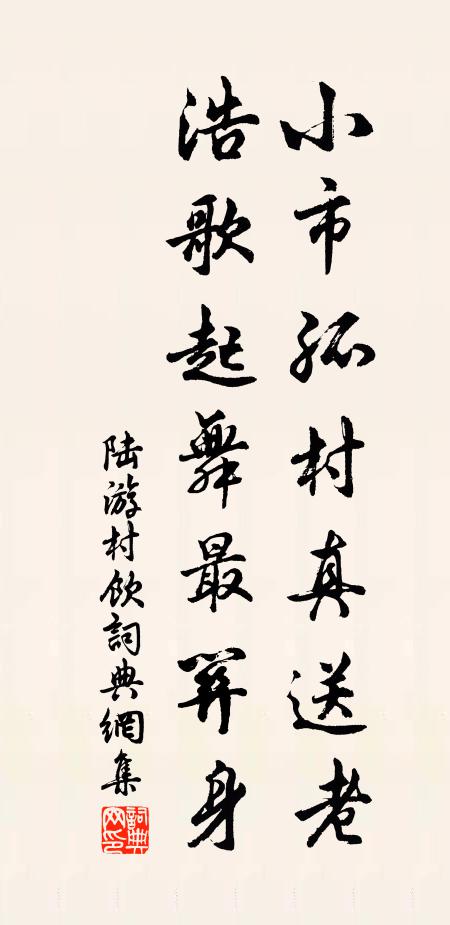 小市孤村真送老
浩歌起舞最關身
陸游村飲詞典網集
詞典網印